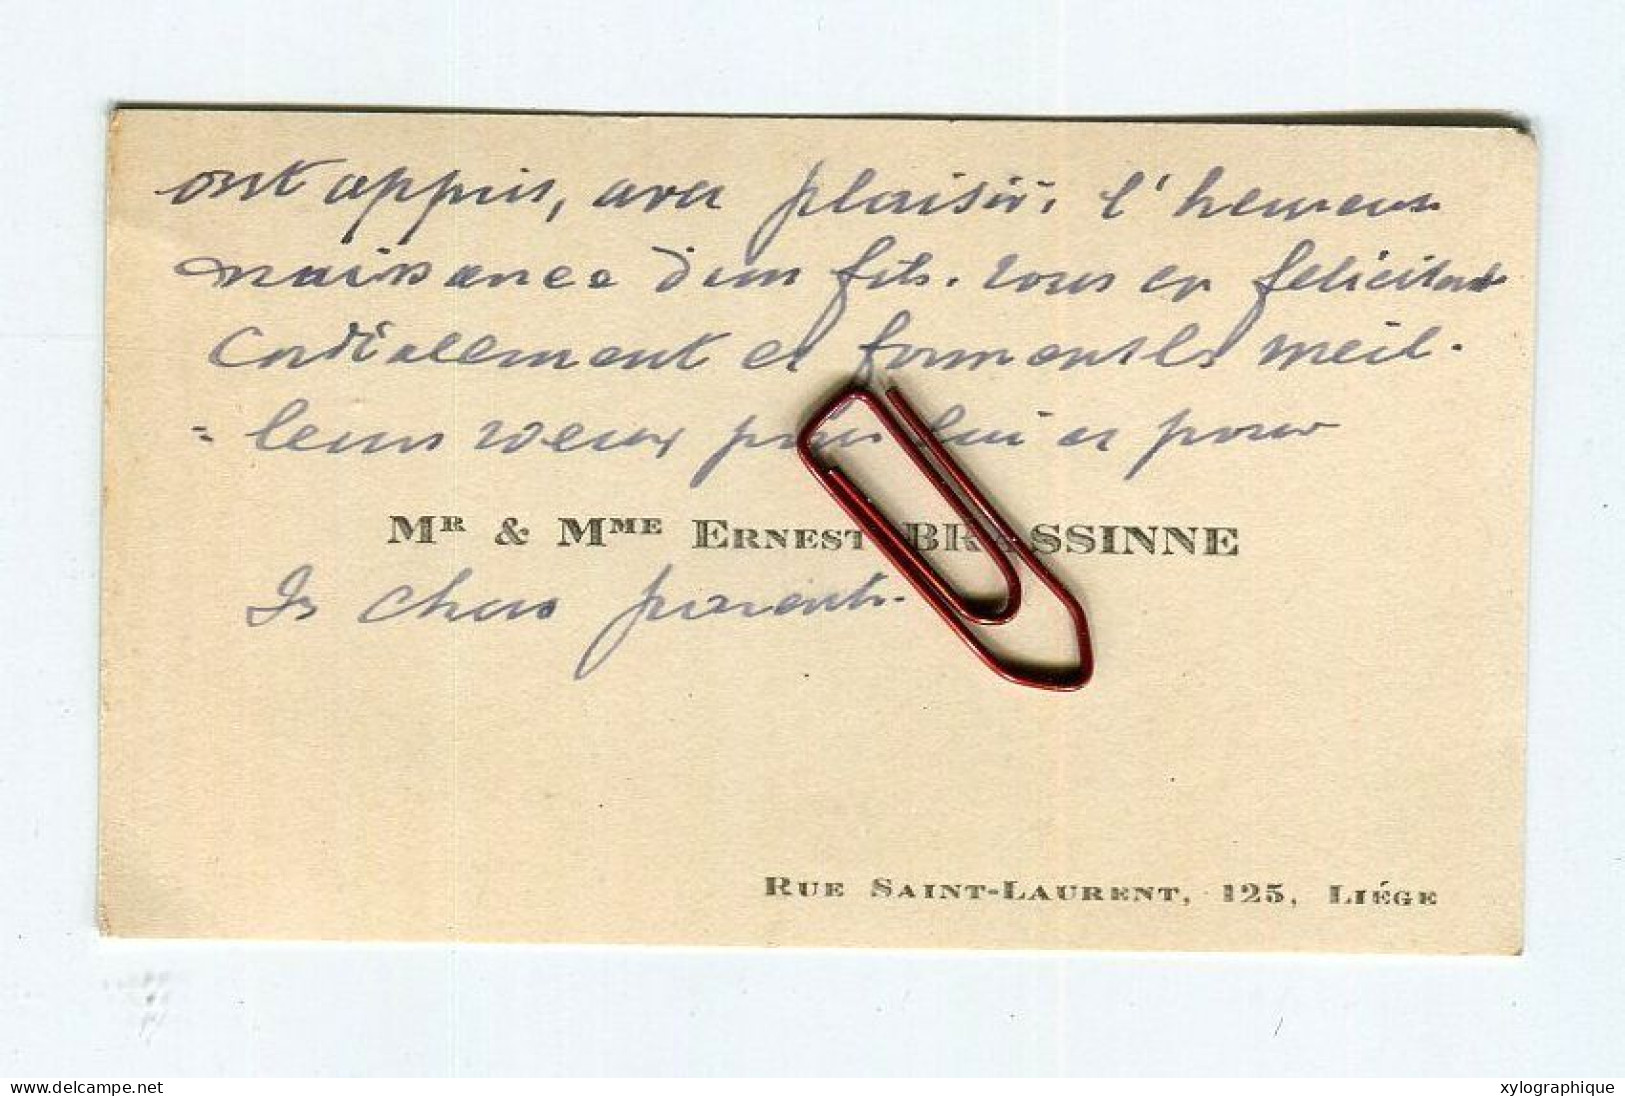 ont appris, avec plaisir, l'heureuse
naissance d'un fils. Vous en félicitent
Cordialement et forment les meil-
-leurs voeux pour lui et pour
MR & MME ERNEST BRASSINNE
Ses chers parents.
RUE SAINT-LAURENT, 125, LIÉGE
www.delcampe.net
xylographique